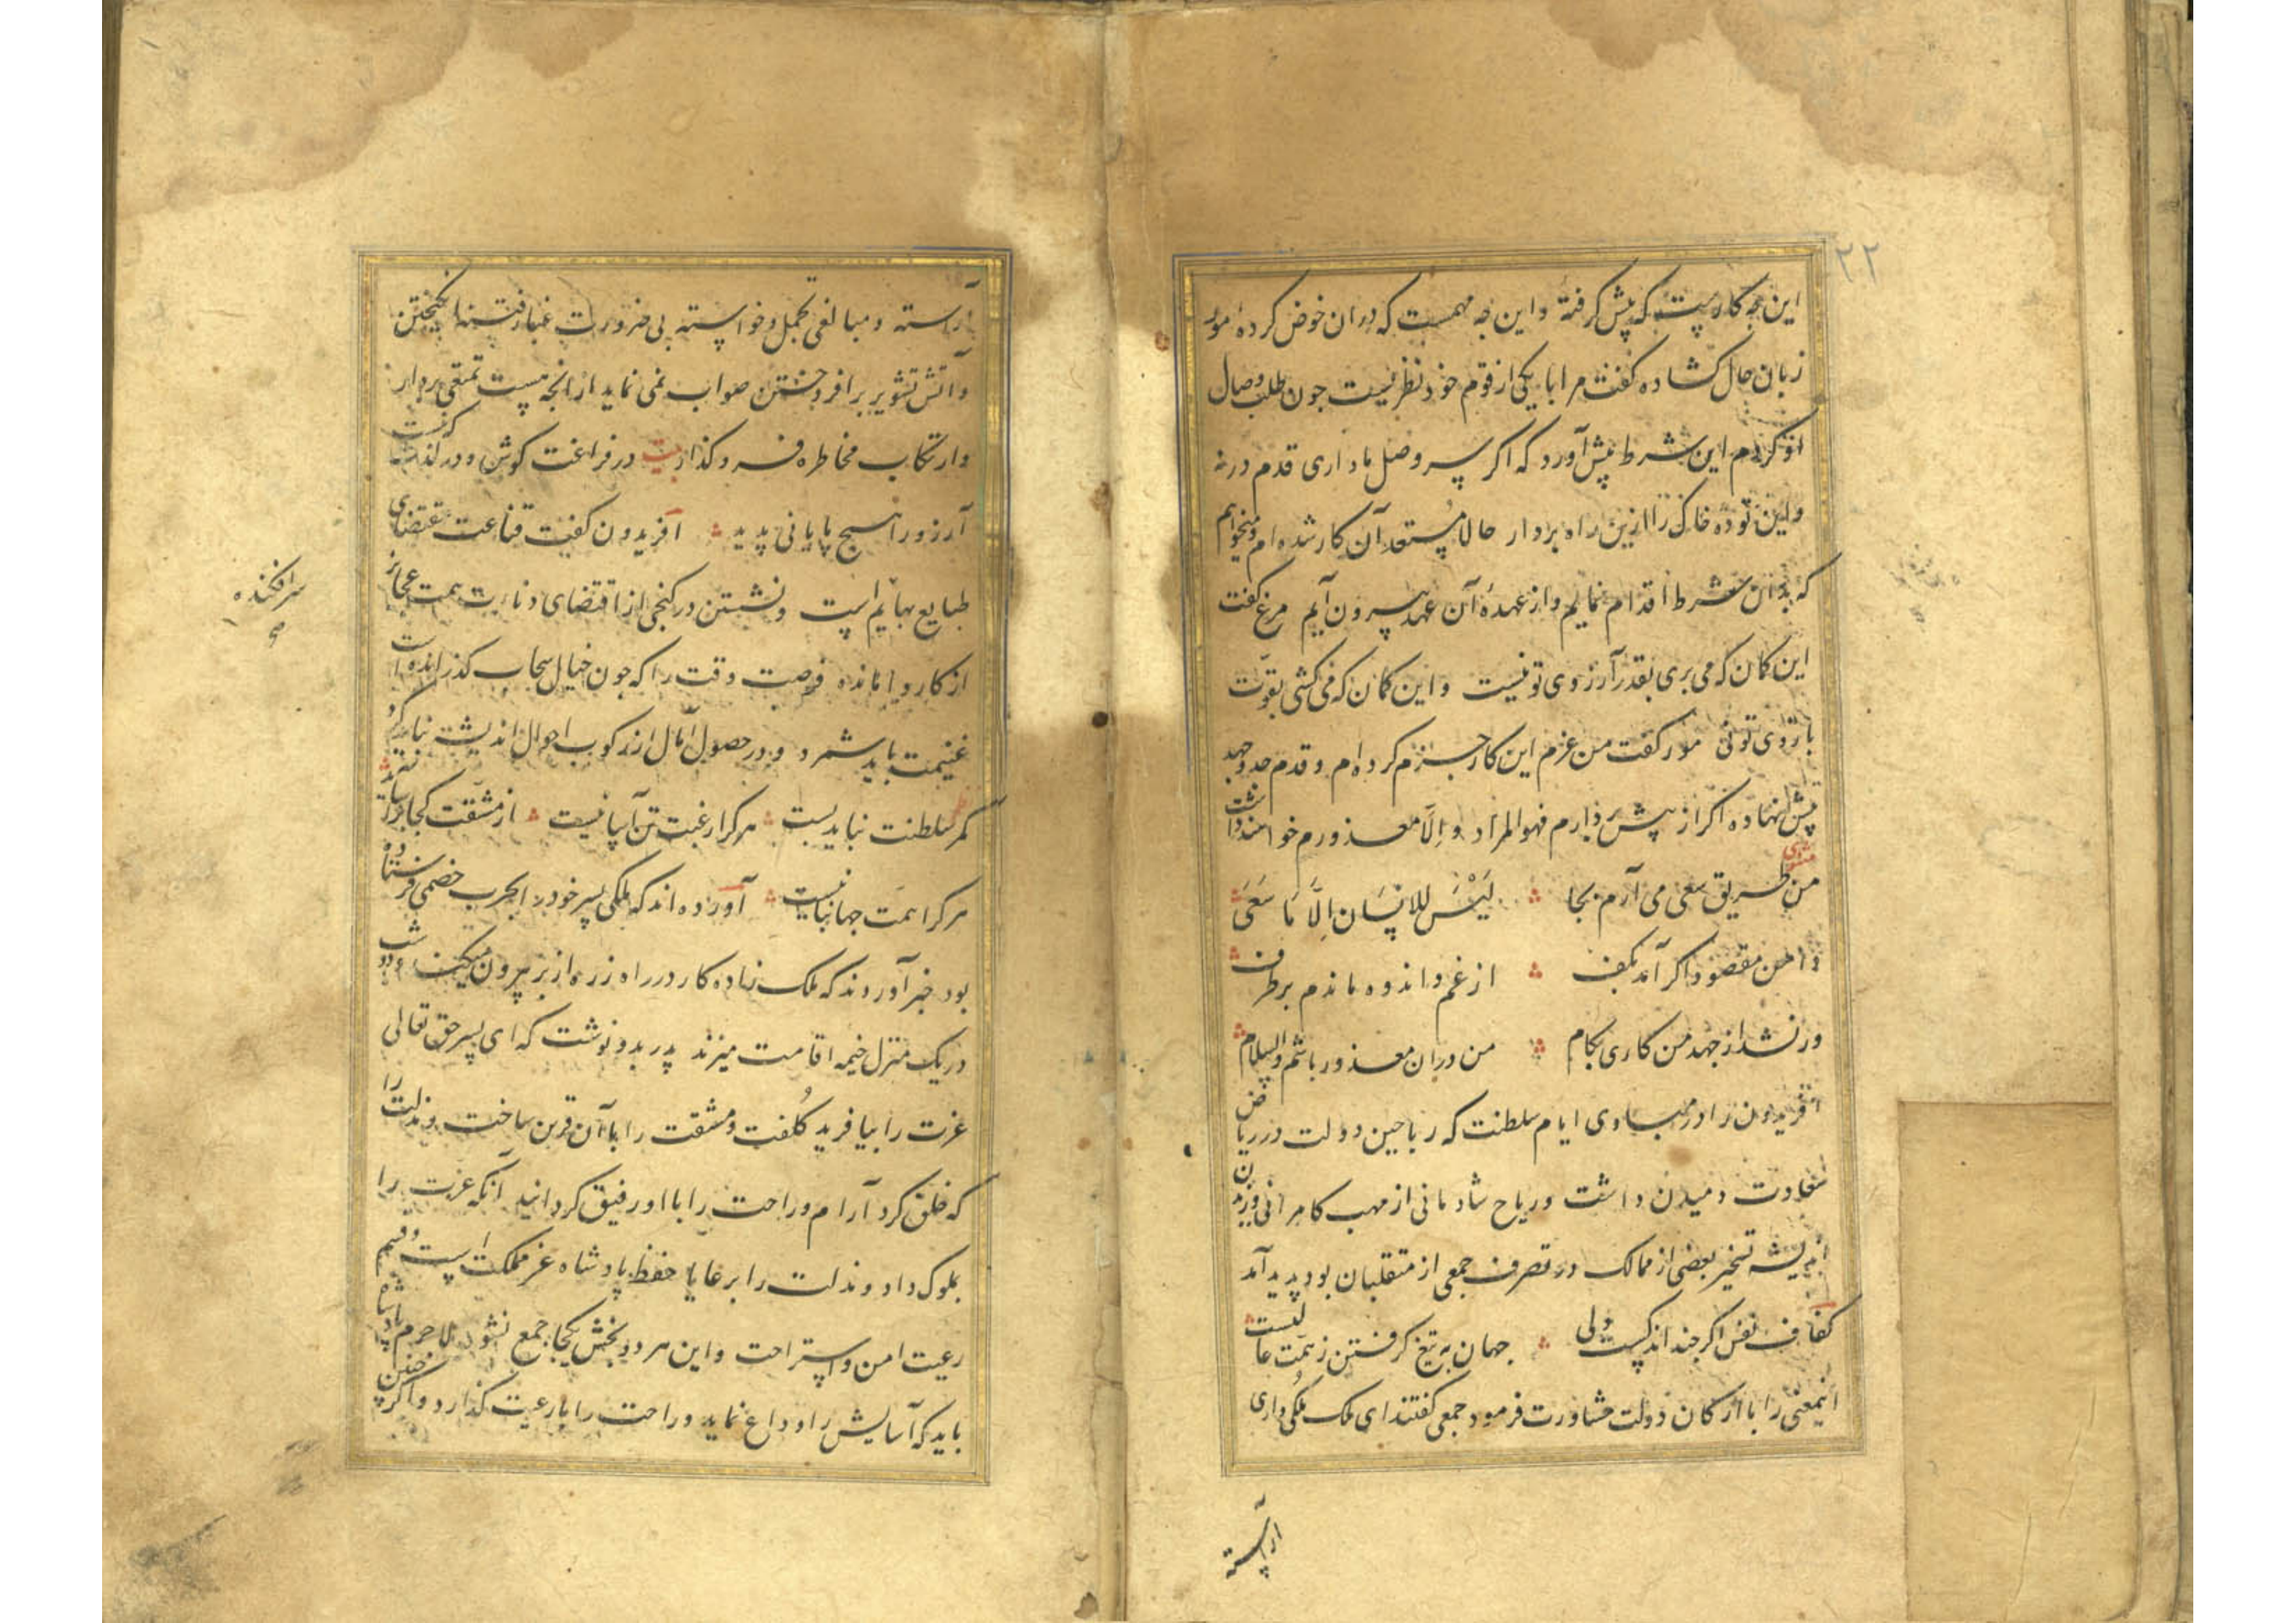 ۲۲
این چه کاریست که پیش گرفتهٔ و این چه مهمست که دران خوض کردهٔ مور
زبان حال کشاده کفت مرا با یکی از قوم خود نظریست چون طلب وصال
او کردم این شرط پیش آورد که اکر سر وصل ما داری قدم درنه
و این توده خاک را ازین راه بردار حالا مستعد آن کار شده ام و میخواهم
که بدان شرط اقدام نمایم و از عهدهٔ آن عهد بیرون آیم مرغ کفت
این کمان که می بری بقدر آرزوی تو نیست و این کمان که می کشی بقوت
بازوی تو نی مور کفت من عزم این کار جزم کرده ام و قدم جد و جهد
پیش نهاده اکر از پیش بردارم فهو المراد و اِلّا معذورم خواهند داشت
مثنوی
من طریق سعی می آرم بجا لَیْسَ للانسَان اِلَّا مَا سَعَی
دامن مقصود اکر آمد بکف از غم و اندوه ماندم برطرف
ور نشد از جهد من کاری بکام من دران معذور باشم والسلام
افریدون را در مبادی ایام سلطنت که ریاحین دولت در ریاض
سعادت دمیدن داشت و ریاح شادمانی از مهب کامرانی وزیدن
اندیشه تسخیر بعضی از ممالک در تصرف جمعی از متقلبان بود پدید آمد
کفاف نفس اکر چند اندکیست ولی جهان به تیغ کرفتن ز همت عالیست
اینمعنی را با ارکان دولت مشاورت فرمود جمعی کفتند ای ملک مُلکی داری
آراسته
آراسته و مبالغی تجمل و خواسته بی ضرورت غبار فتنه انکیختن
و آتش تشویر برافروختن صواب نمی نماید از انچه هست تمتعی بردار
و ارتکاب مخاطره فرو کذار بیت در فراغت کوش و در لذت که نیست
آرزو را هیچ پایانی پدید افریدون کفت قناعت مقتضای
طبایع بهایم است و نشستن در کنجی از اقتضای دناءت همت عجایز
از کار واماندهٔ فرصت وقت را که چون خیال سحاب کذرانده است
غنیمت باید شمرد و در حصول آمال از رکوب احوال اندیشه نباید کرد
کمر سلطنت نباید بست هر کرا رغبت تن آسانیست از مشقت کجا براساید
هر کرا همت جهانبانیست آورده اند که ملکی پسر خود را بحرب خصمی فرستاده
بود خبر آوردند که ملک زاده کار در راه زره از بر بیرون میکند و دو شب
در یک منزل خیمه اقامت میزند پدر بدو نوشت که ای پسر حق تعالی
عزت را بیافرید کُلفت و مشقت را با آن قرین ساخت و مذلت را
که خلق کرد آرام و راحت را با او رفیق کردانید آنکه عزت را
بملوک داد و مذلت را برعایا حفظ پادشاه عز مملکت است و قسم
رعیت امن و استراحت و این هر دو بخش یکجا جمع نشود لاجرم پادشاه
باید که آسایش را وداع نماید و راحت را با رعیت کذارد و اکر چنین
سرافکنده